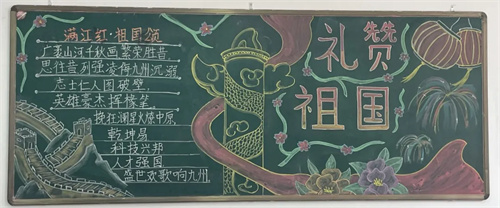 满江红·祖国颂
广袤山河千秋画繁荣胜昔
思往昔列强凌侮九州沉溺
志士仁人图破壁
英雄豪杰挥椽笔
挽狂澜星火燎中原
乾坤易
科技兴邦
人才强国
盛世欢歌响九州
礼赞
祖国